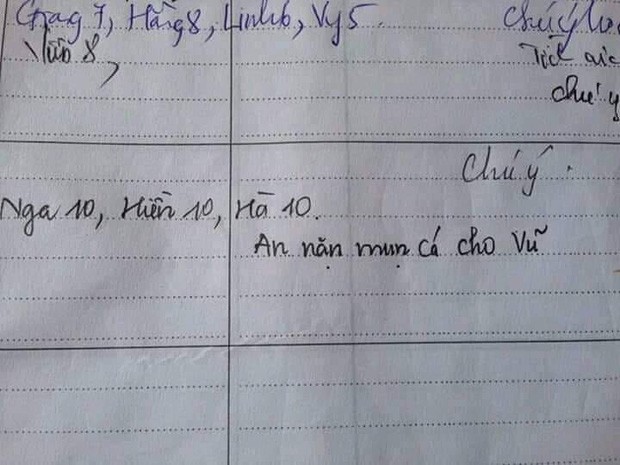 Giang 7, Hằng 8, Linh 6, Vy 5.
Chú ý
8,
Tích
chú ý
Chú ý.
Nga 10, Hiền 10, Hà 10.
An nặn mụn cá cho Vũ